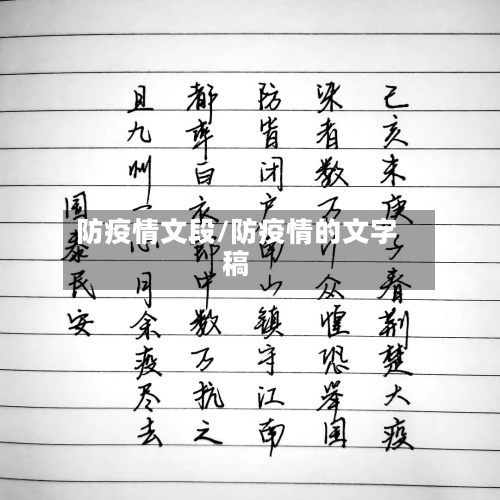 己亥末庚子春荆楚大疫
染者数万众惶恐举国
防皆闭户南山镇守江南
都率白衣郎中数万抗之
且九州一心月余疫尽去
国泰民安
防疫情文段/防疫情的文字
稿